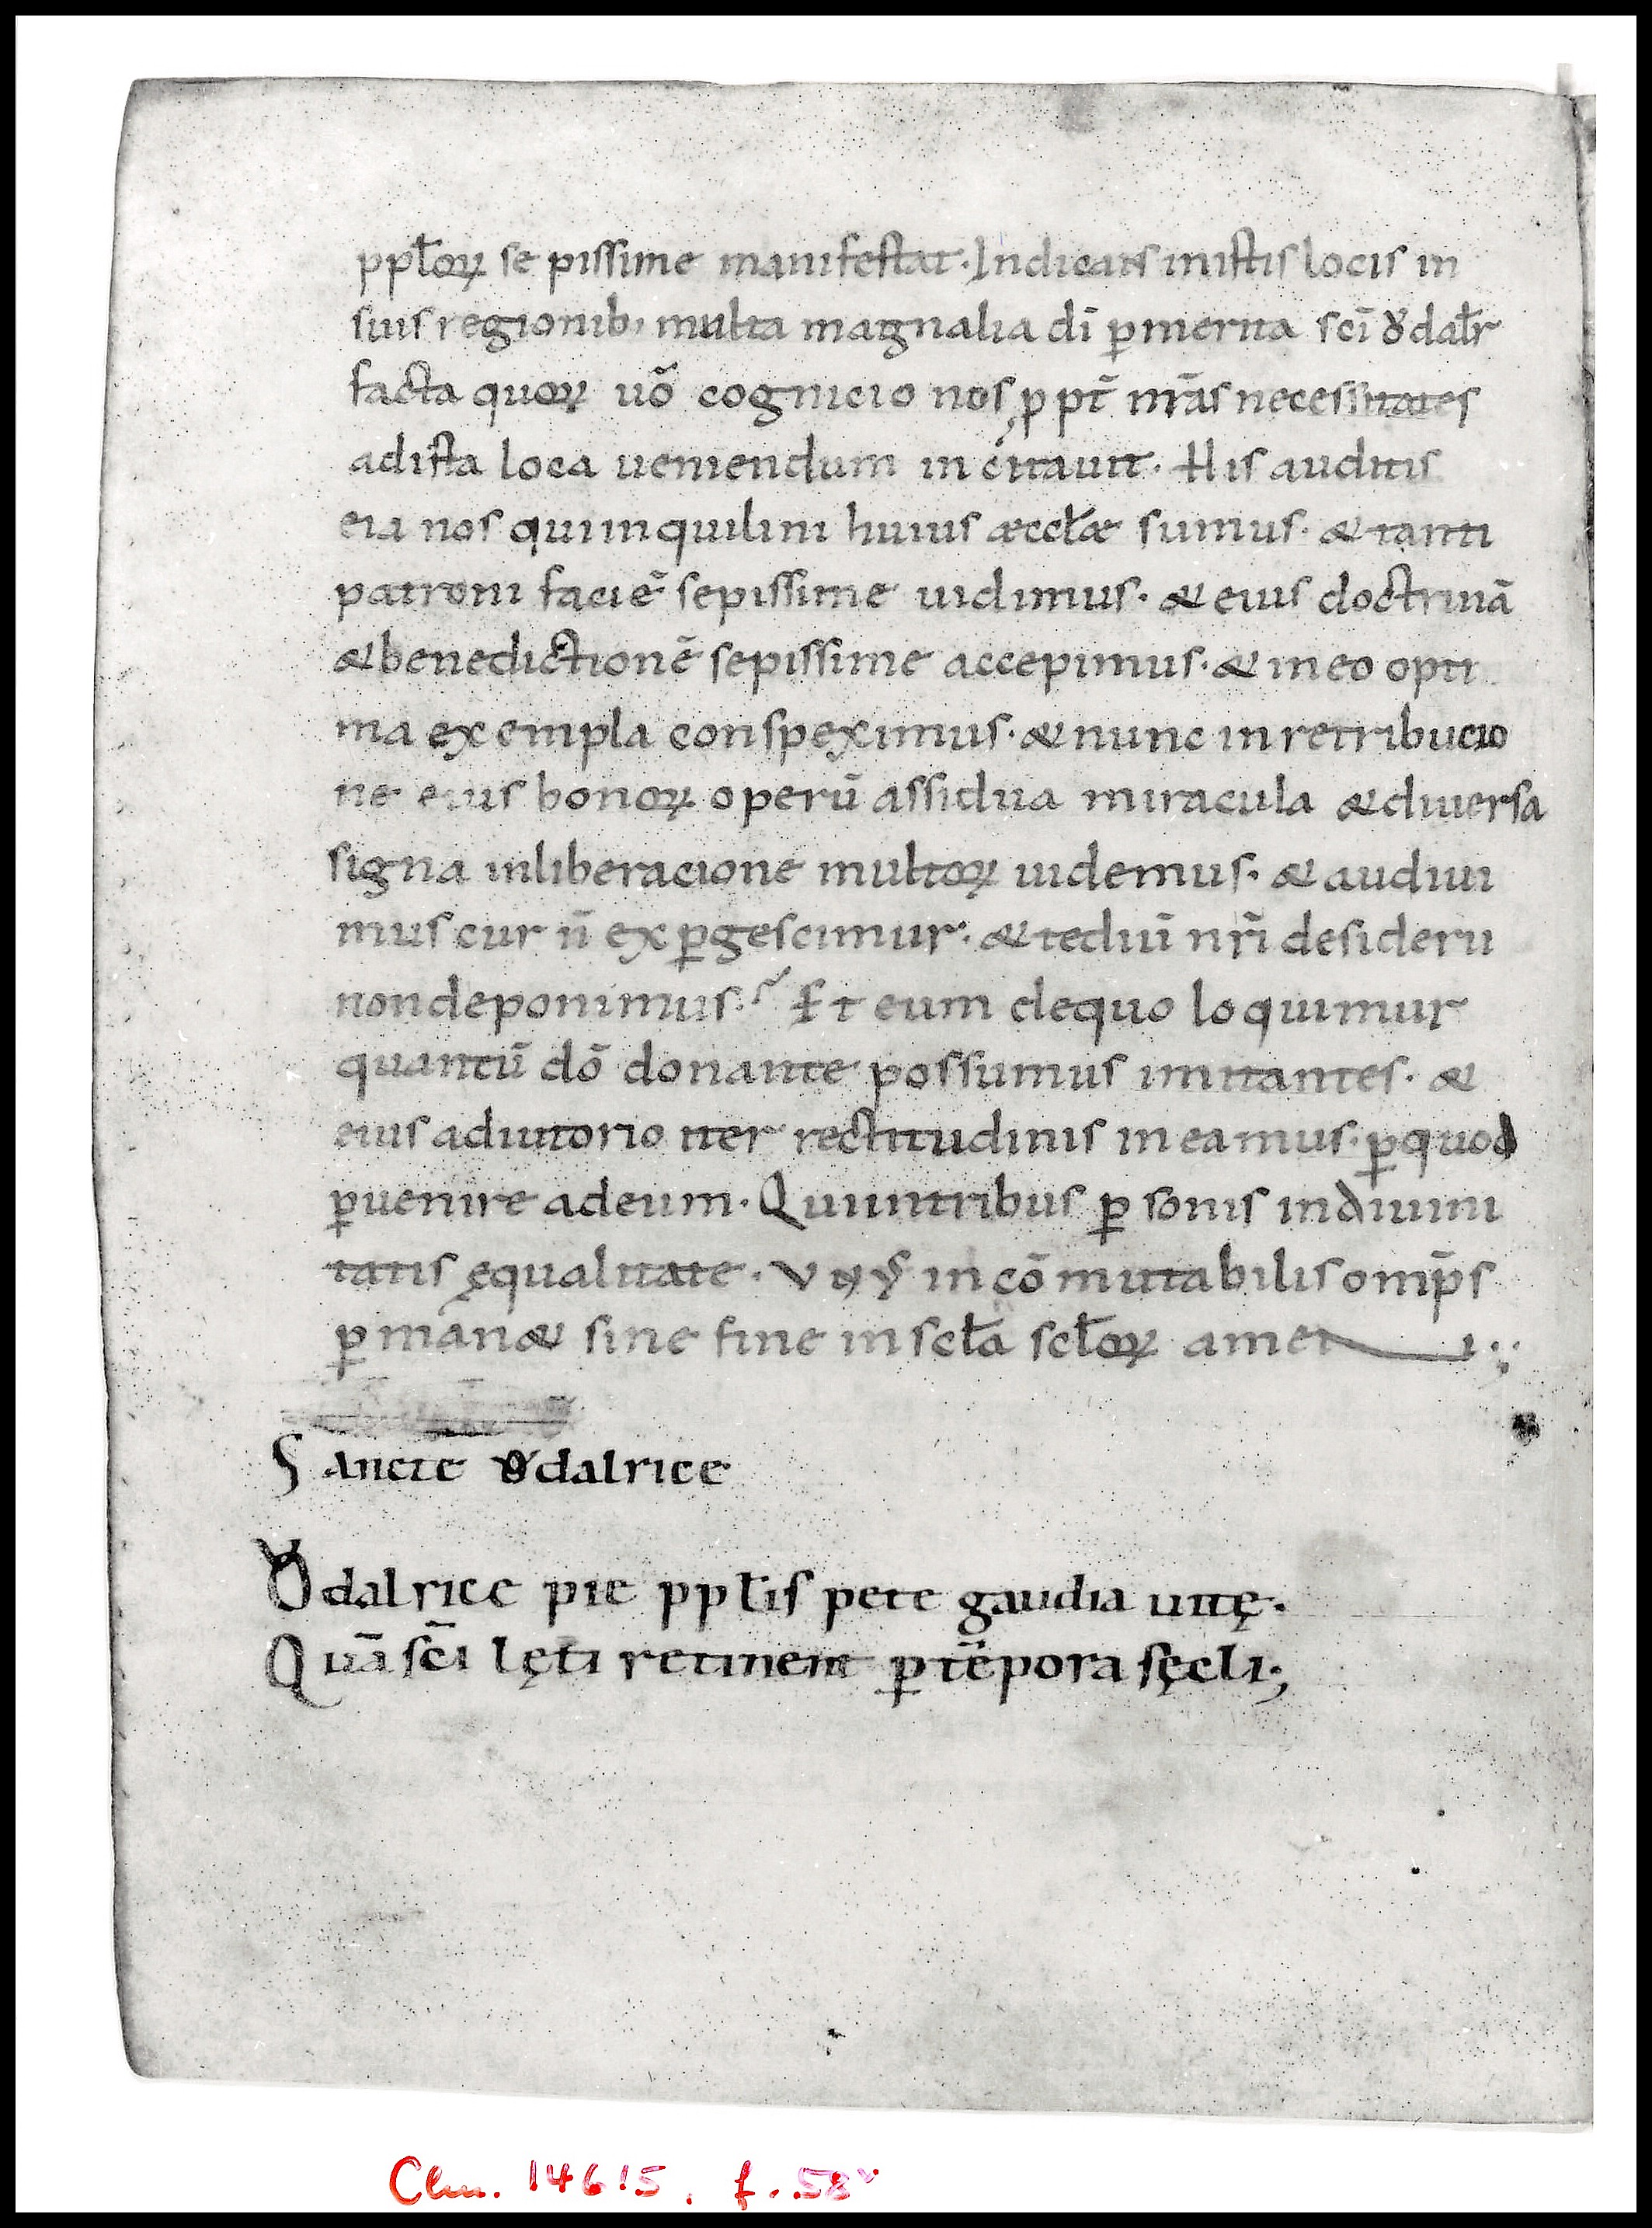 ppl̄oꝝ se pissime manifestat. Indicans inistis locis in
suis regionib; multa magnalia dī ꝑmerita scī Ꝟdalr̄
facta quoꝝ uō cognicio nos ꝓpt̄ nr̄as necessitates
adista loca ueniendum incitauit. His auditis
eia nos quiinquilini huius æccl̄æ sumus. & tanti
patroni faciē sepissime uidimus. & eius doctrinā
& benedictionē sepissime accepimus. & ineo opti
ma exempla conspeximus. & nunc inretribucio
ne eius bonoꝝ operū assidua miracula & diuersa
signa inliberacione multoꝝ uidemus. & audiui
mus cur n̄ exꝑgescimur. & tediū nr̄i desiderii
nondeponimus? Et eum dequo loquimur
quantū dō donante possumus imitantes. &
eius adiutorio iter rectitudinis ineamus. ꝑquod
ꝑuenire adeum. Quiintribus ꝑsonis indiuini
tatis ęqualitate. incōmutabilis omīps
ꝑman& sine fine inscl̄a scl̄oꝝ amen.
Sancte Uͦdalrice
Uͦdalrice pie ppl̄is pete gaudia uitę.
Quā scī lęti retinent ꝑ tēpora sęcli;
Clm. 14615, f. 58ᵛ